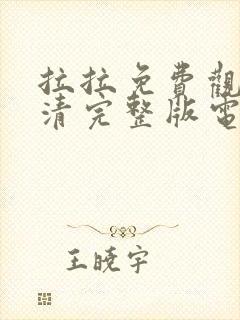 拉拉免費觀
清完整版電
王曉宇